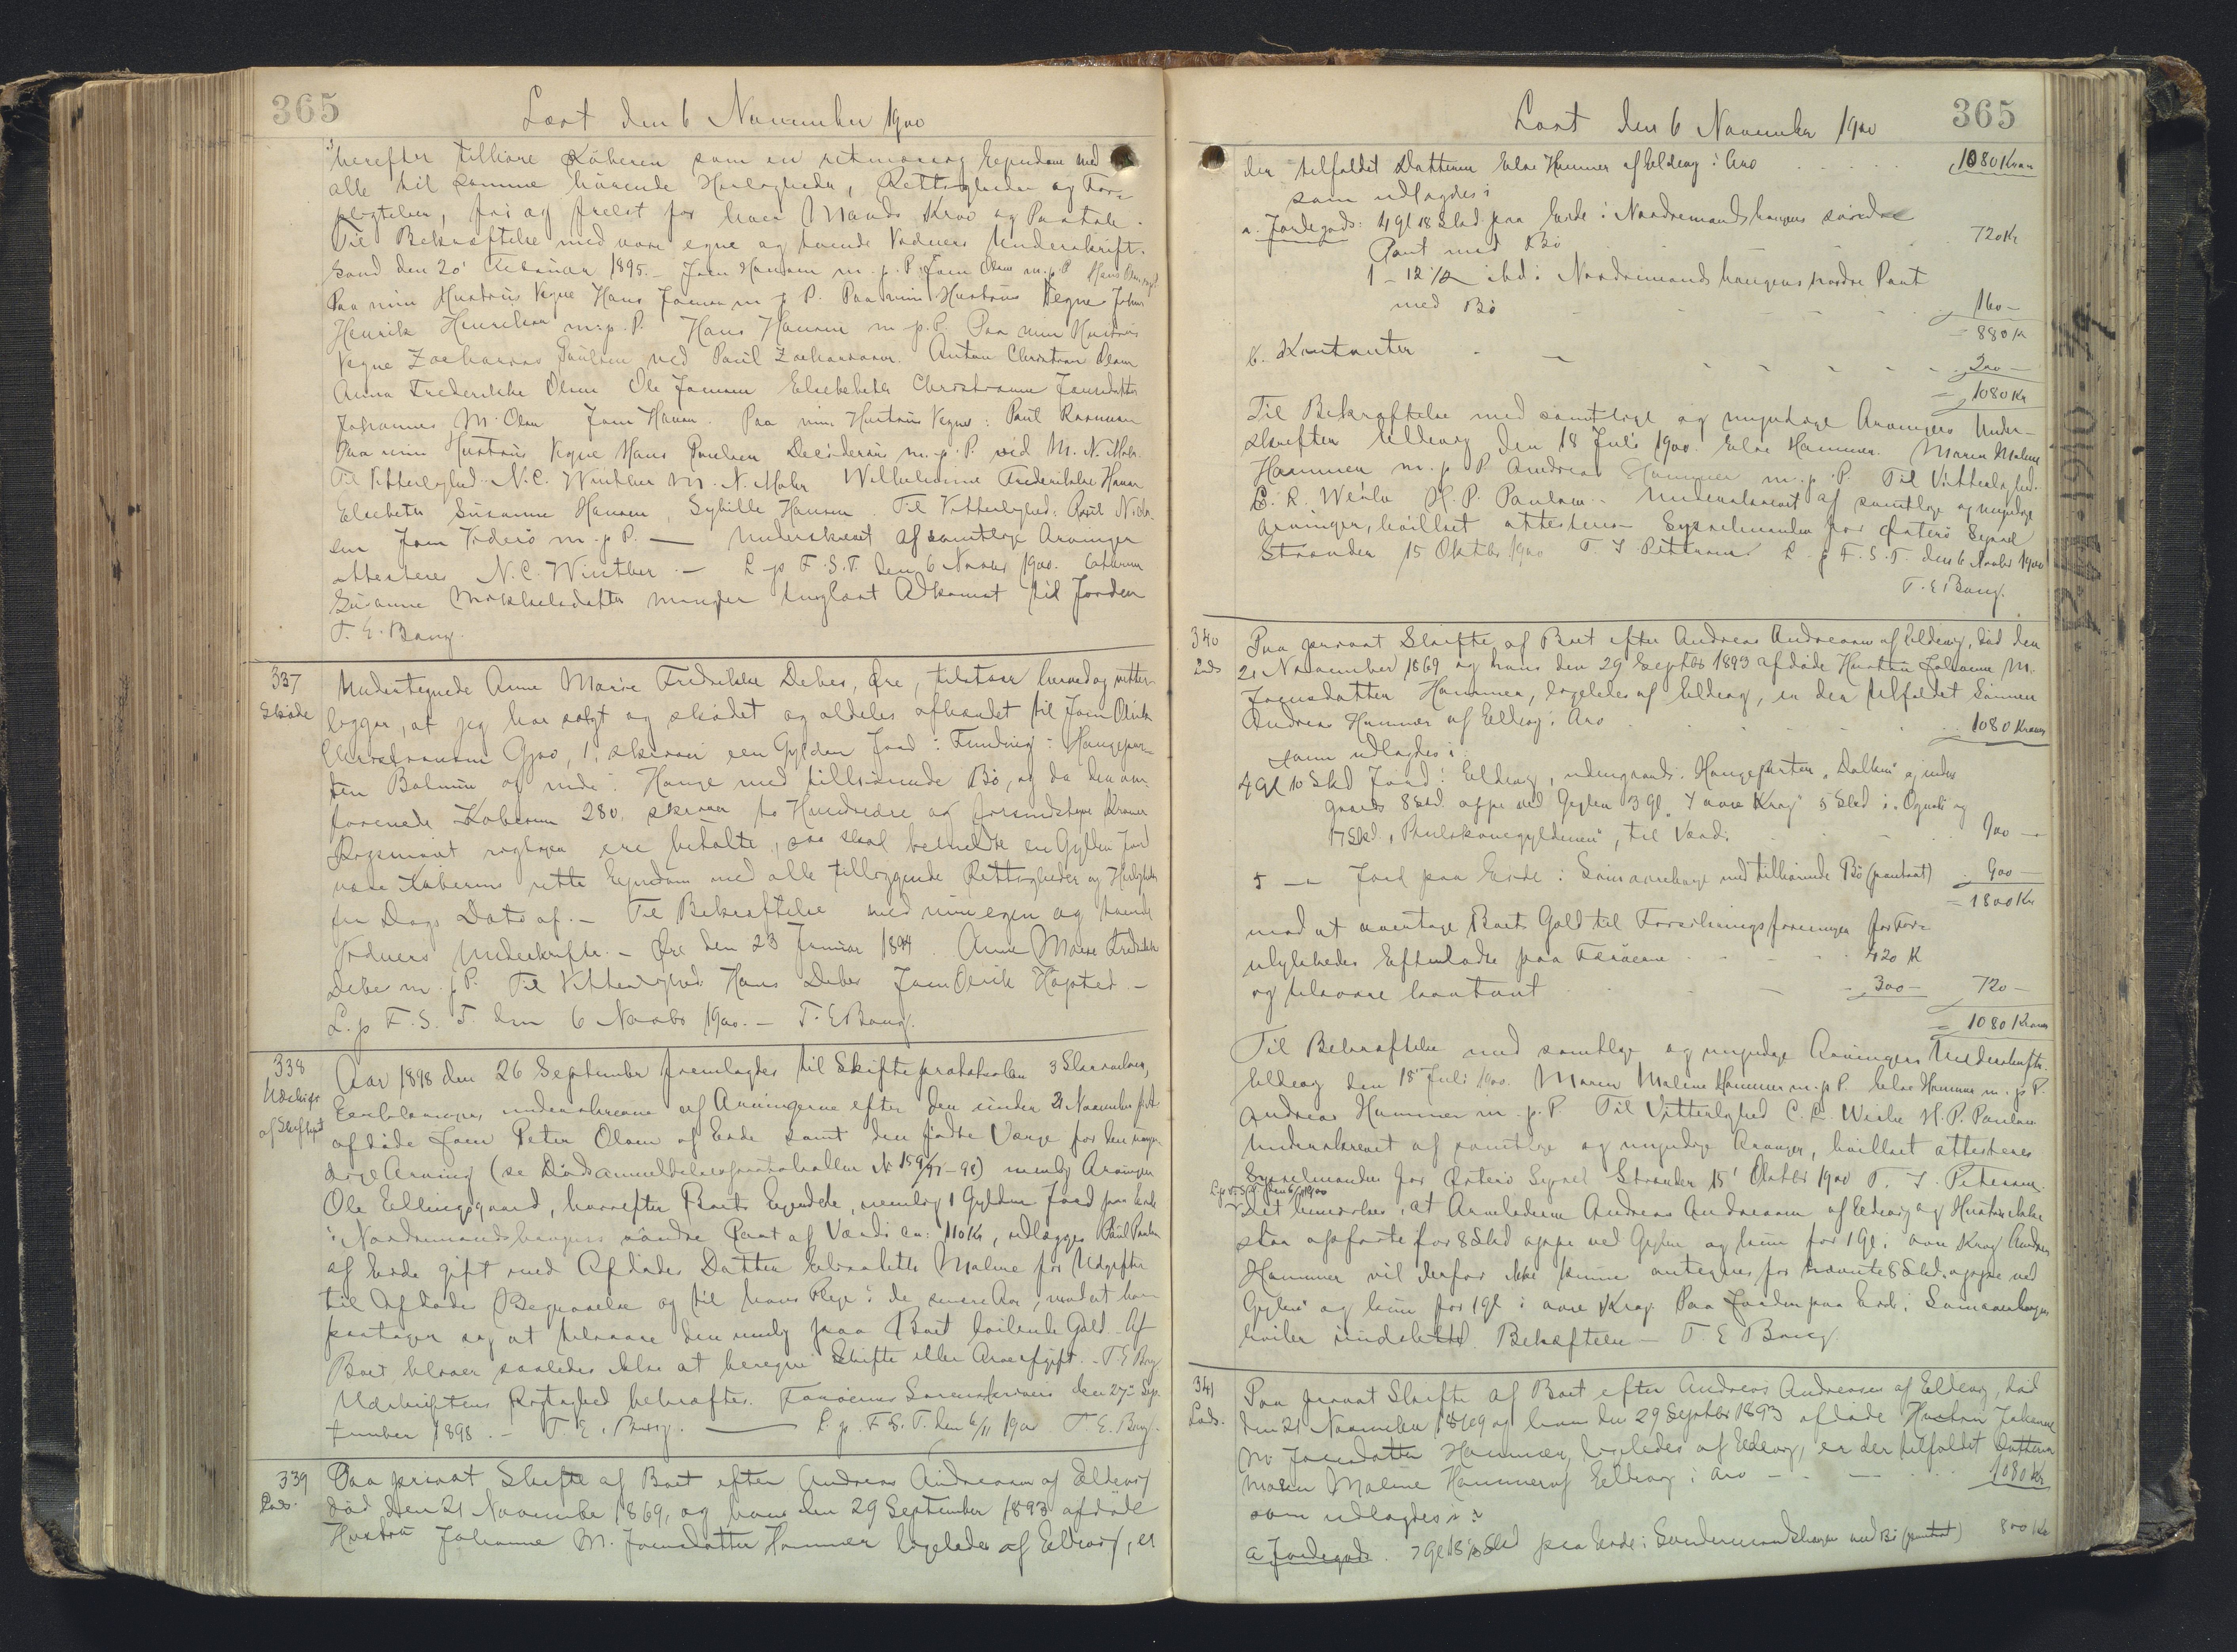 365
Læst den 6 November 1900
herefter tilhøre Køberen som en retmæssig Ejendom med
alle til samme hørende Herligheder, Rettigheder og For-
pligtelser, fri og frelst for hver Mands Krav og Paatale.
Til Bekræftelse med vore egne og tvende Vidners Underskrift.
Sand den 20' Februar 1895. - Joen Hansen m. p. P. Joen Olsen m. p. P. Hans
Paa min Hustrus Vegne Hans Joensen m. p. P. Paa min Hustrus Vegne Johan
Henrik Henriksen m. p. P. Hans Hansen m. p. P. Paa min Hustrus
Vegne Zacharias Paulsen ved Paul Zachariasen. Anton Christian Olsen
Anna Frederikke Olsen Ole Joensen Elsebeth Christianne Joensdatter
Johannes M. Olsen Joen Hansen. Paa min Hustrus Vegne: Paul Rasmussen
Paa min Hustrus Vegne Hans Poulsen Desiderius m. p. P. ved M. N. Mohr.
Til Vitterlighed N. C. Winther M. N. Mohr Wilhelmine Frederikke Hansen
Elsebeth Susanne Hansen, Sybille Hansen. Til Vitterlighed: Poul Niclas-
sen Joen Viderø m. p. P. — Underskrevet af samtlige Arvinger
attesteres N. C. Winther. — L. p. F. S. T. den 6 Novbr 1900. Cathrine
Susanne Mikkelsdatter mangler tinglæst Adkomst til Jorden
T. E. Bang.
337
Skøde
Undertegnede Anne Marie Fredrikke Debes, Øre, tilstaar herved og vitter-
ligger, at jeg har solgt og skødet og aldeles afhændet til Joen Olrik
Christiansen Gjov, 1, skriver een Gylden Jord i Funding i Haugepar-
ten Bakmur og inde i Hauge med tilhørende Bø, og da den om-
forenede Købesum 280, skriver to Hundrede og firsindstyve Kroner
Rigsmønt rigtigen ere betalte, saa skal bemeldte en Gylden Jord
være Køberens rette Ejendom med alle tilliggende Rettigheder og Herligheder
fra Dags Dato af. — Til Bekræftelse med min egen og tvende
Vidners Underskrifter. — Øre den 23 Januar 1894. Anne Marie Fredrikke
Debes m. p. P. Til Vitterlighed Hans Debes Joen Olrik Høgsted. —
L. p. F. S. T. den 6 Novbr 1900. — T. E. Bang.
338
Udskrift
af Skifteprt
Aar 1898 den 26 September fremlagdes til Skifteprotokollen 3 Skrivelser,
Exxtraheringen underskrevne af Arvingerne efter den under 21 November
afdøde Joen Peter Olsen af Eide samt den fødte Værge for den umyn-
dige Arving (se Dødsanmeldelsesprotokollen № 159/97-98) nemlig Arvingen
Ole Ellingsgaard, hvorefter Boets Ejendele, nemlig 1 Gylden Jord paa Eide
i Nordremandshaugens søndre Part af Værdi ca: 110 Kr, udlægges Paul Poulsen
af Eide gift med Afdødes Datter Elisabeth Malene for Udgifter
til Afdødes Begravelse og til hans Pleje i de senere Aar, mod at han
paatager sig at tilsvare den mulig paa Boet hvilende Gæld. Af
Boet bliver saaledes ikke at beregne Skifte eller Arveafgift. - T. E. Bang
Udskriftens Rigtighed bekræftes. Færøernes Sorenskriveri den 27' Sep-
tember 1898. - T. E. Bang. — L. p. F. S. T. den 6/11 1900 T. E. Bang.
339
Uds.
Paa privat Skifte af Boet efter Andreas Andreasen af Eldevig
død den 21 November 1869, og hans den 29 September 1893 afdøde
Hustru Johanne M. Joensdatter Hammer ligeledes af Eldevig, er
Læst den 6 November 1900
365
der tilfaldet Datteren Else Hammer af Eldevig i Arv
1080 Kroner
som udlagdes i
a. Jordegods: 4 gl 18 Skd. paa Eide i Nordremandshaugens søndre
Part med Bø 720 Kr
1 - 12 1/2 ibd i Nordremandshaugens nordre Part
med Bø 160 -
= 880 Kr
b. Kontanter 200 -
= 1080 Kr
Til Bekræftelse med samtlige og myndige Arvingers Under-
skrifter Eldevig den 18 Juli 1900. Else Hammer. Maren Malene
Hammer m. p. P. Andreas Hammer m. p. P. Til Vitterlighed.
C. L. Weihe H. P. Paulsen. Underskrevet af samtlige og myndige
Arvinger, hvilket attesteres Sysselmanden for Østerø Syssel
Strænder 15 Oktbr 1900 T. J. Petersen. L. p. F. S. T. den 6 Novbr 1900
T. E. Bang.
340
Uds
Paa privat Skifte af Boet efter Andreas Andreasen af Eldevig, død den
21 November 1869 og hans den 29 Septbr 1893 afdøde Hustru Johanne M.
Joensdatter Hammer, ligeledes af Eldevig, er der tilfaldet Sønnen
Andreas Hammer af Eldevig i Arv 1080 Kroner
som udlagdes i
4 Gl 10 Skd Jord i Eldevig, udengaards i Haugeparten „Dalken" og inden
gaards 8 Skd. oppe ved Grylen 3 gl. „I ovre Krog" 5 Skd i og
17 Skd. „Paulskonegyldenen", til Værdi 900 -
5 — Jord paa Eide i med tilhørende Bø (pantsat) 900 -
= 1800 Kr
mod at overtage Boets Gæld til Forsikringsforeningen for For-
ulykkedes Efterladte paa Færøerne 420 K
og tilsvare kontant 300 - 720 -
= 1080 Kroner
Til Bekræftelse med samtlige og myndige Arvingers Underskrifter.
Eldevig den 18 Juli 1900. Maren Malene Hammer m. p. P. Else Hammer m. p. P.
Andreas Hammer m. p. P. Til Vitterlighed C. L. Weihe H. P. Paulsen
Underskrevet af samtlige og myndige Arvinger, hvilket attesteres
Sysselmanden for Østerø Syssel Strænder 15' Oktbr 1900 T. J. Petersen.
L. p. F. S. T. den 6/11 1900
Det bemærkes, at Arveladerne Andreas Andreasen af Eldevig og Hustru ikke
staa opførte for 8 Skd oppe ved Grylen og kun for 1 Gl. i ovre Krog Andreas
Hammer vil derfor ikke kunne antegnes for nævnte 8 Skd. oppe ved
Grylen og kun for 1 gl i ovre Krog. Paa Jorden paa Eide i
hviler Bekræftelse — T. E. Bang.
341
Uds.
Paa privat Skifte af Boet efter Andreas Andreasen af Eldevig, død
den 21 November 1869 og hans den 29 Septbr 1893 afdøde Hustru Johanne
M. Joensdatter Hammer, ligeledes af Eldevig, er der tilfaldet Datteren
Maren Malene Hammer af Eldevig i Arv 1080 Kr
som udlagdes i:
a. Jordegods. 7 Gl 18 Skd paa Eide i Søndermandshaugen med Bø (pantsat) 800 Kr